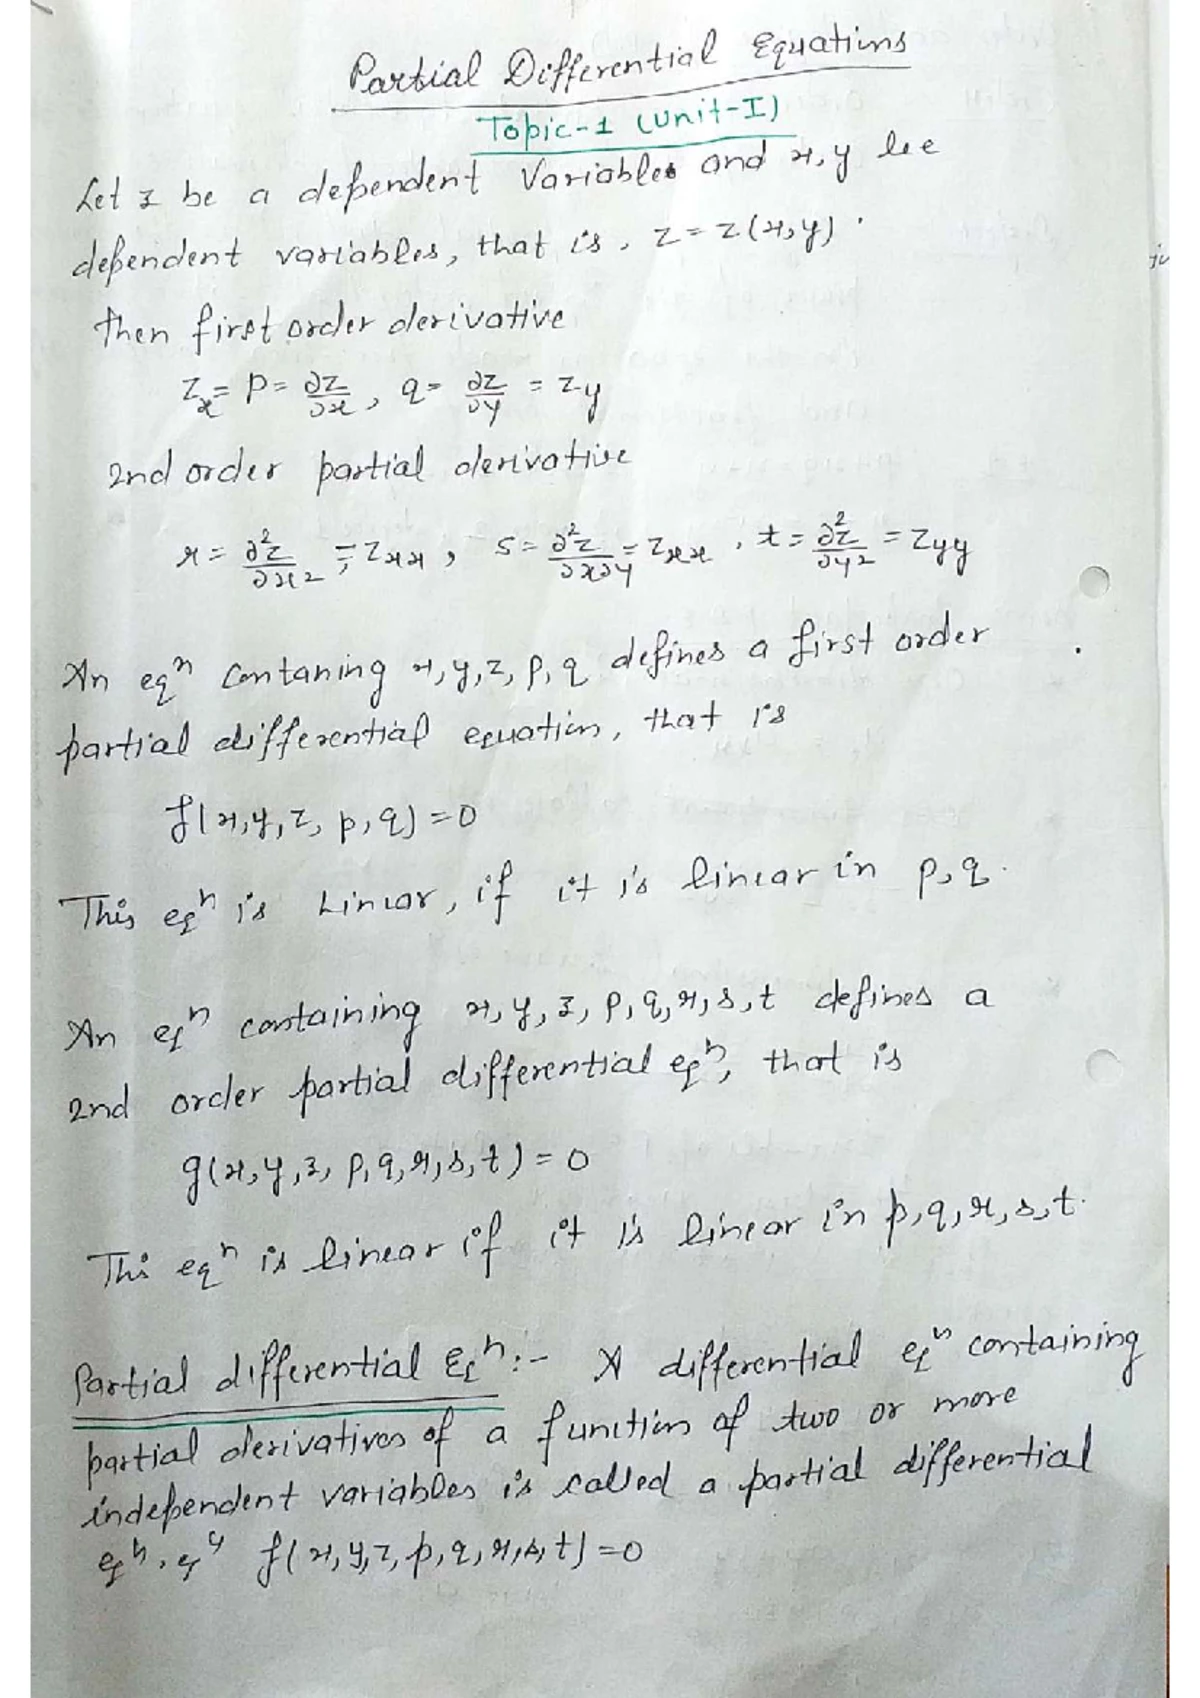 Partial Differential Equations
Topic-1 (Unit-I)
Let z be a dependent Variables and x, y be
dependent variables, that is, z = z(x,y).
Then first order derivative
Z_x = p = ∂z/∂x, q = ∂z/∂y = z_y
2nd order partial derivative
r = ∂²z/∂x² = z_xx, s = ∂²z/∂x∂y = z_xx, t = ∂²z/∂y² = z_yy
An eqⁿ contaning x, y, z, p, q defines a first order
partial differential equation, that is
f(x, y, z, p, q) = 0
This eqⁿ is Linear, if it is linear in p, q.
An eqⁿ containing x, y, z, p, q, r, s, t defines a
2nd order partial differential eqⁿ, that is
g(x, y, z, p, q, r, s, t) = 0
Thi eqⁿ is linear if it is linear in p, q, r, s, t.
Partial differential Eqⁿ:- A differential eqⁿ containing
partial derivatives of a function of two or more
independent variables is called a partial differential
eqⁿ. f(x, y, z, p, q, r, s, t) = 0